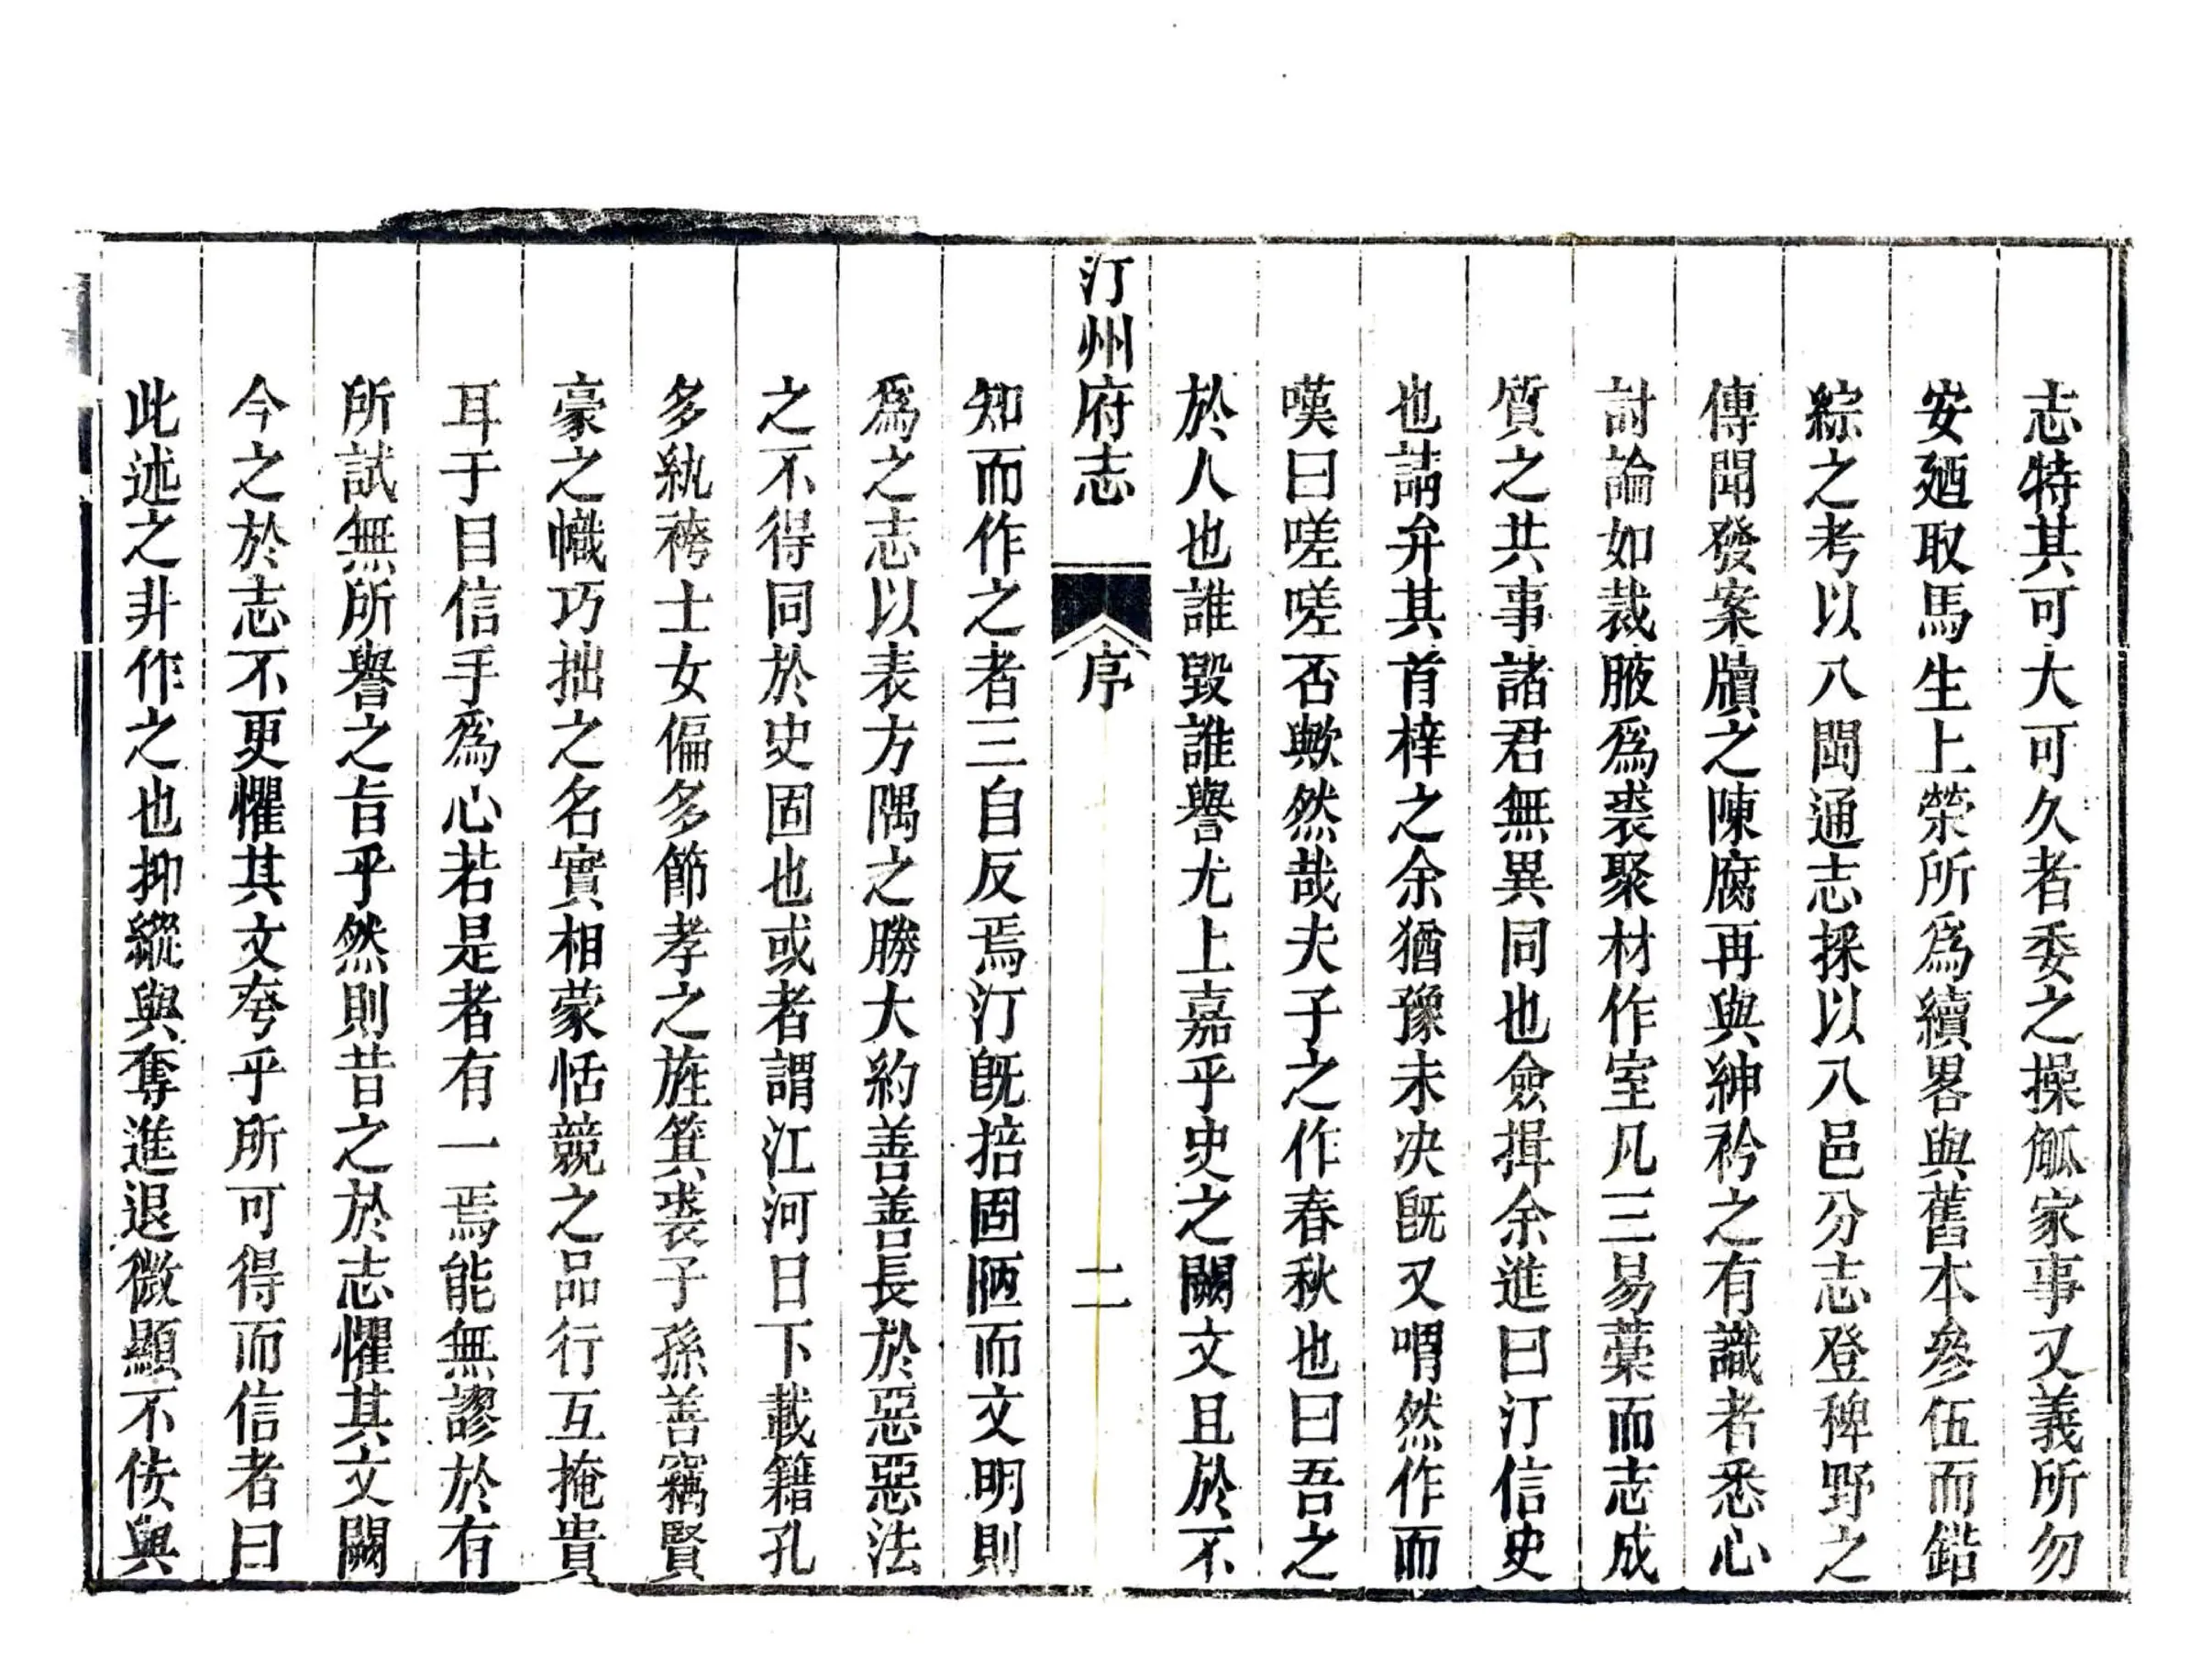 志特其可大可久者委之操觚家事又義所勿
安廼取馬生上榮所爲續畧與舊本參伍而鍇
綜之考以八閩通志採以八邑分志登稗野之
傳聞發案牘之陳腐再與紳衿之有識者悉心
討論如裁腋爲裘聚材作室凡三易藁而志成
質之共事諸君無異同也僉揖余進曰汀信史
也請弁其首梓之余猶豫未決旣又喟然作而
嘆曰嗟嗟否歟然哉夫子之作春秋也曰吾之
於人也誰毀誰譽尤上嘉乎史之闕文且於不
汀州府志 序 二
知而作之者三自反焉汀旣掊固陋而文明則
爲之志以表方隅之勝大約善善長於惡惡法
之不得同於史固也或者謂江河日下載籍孔
多紈袴士女偏多節孝之旌箕裘子孫善竊賢
豪之幟巧拙之名實相蒙恬競之品行互掩貴
耳于目信手爲心若是者有一焉能無謬於有
所試無所譽之旨乎然則昔之於志懼其文闕
今之於志不更懼其文夸乎所可得而信者曰
此述之非作之也抑縱與奪進退微顯不佞與